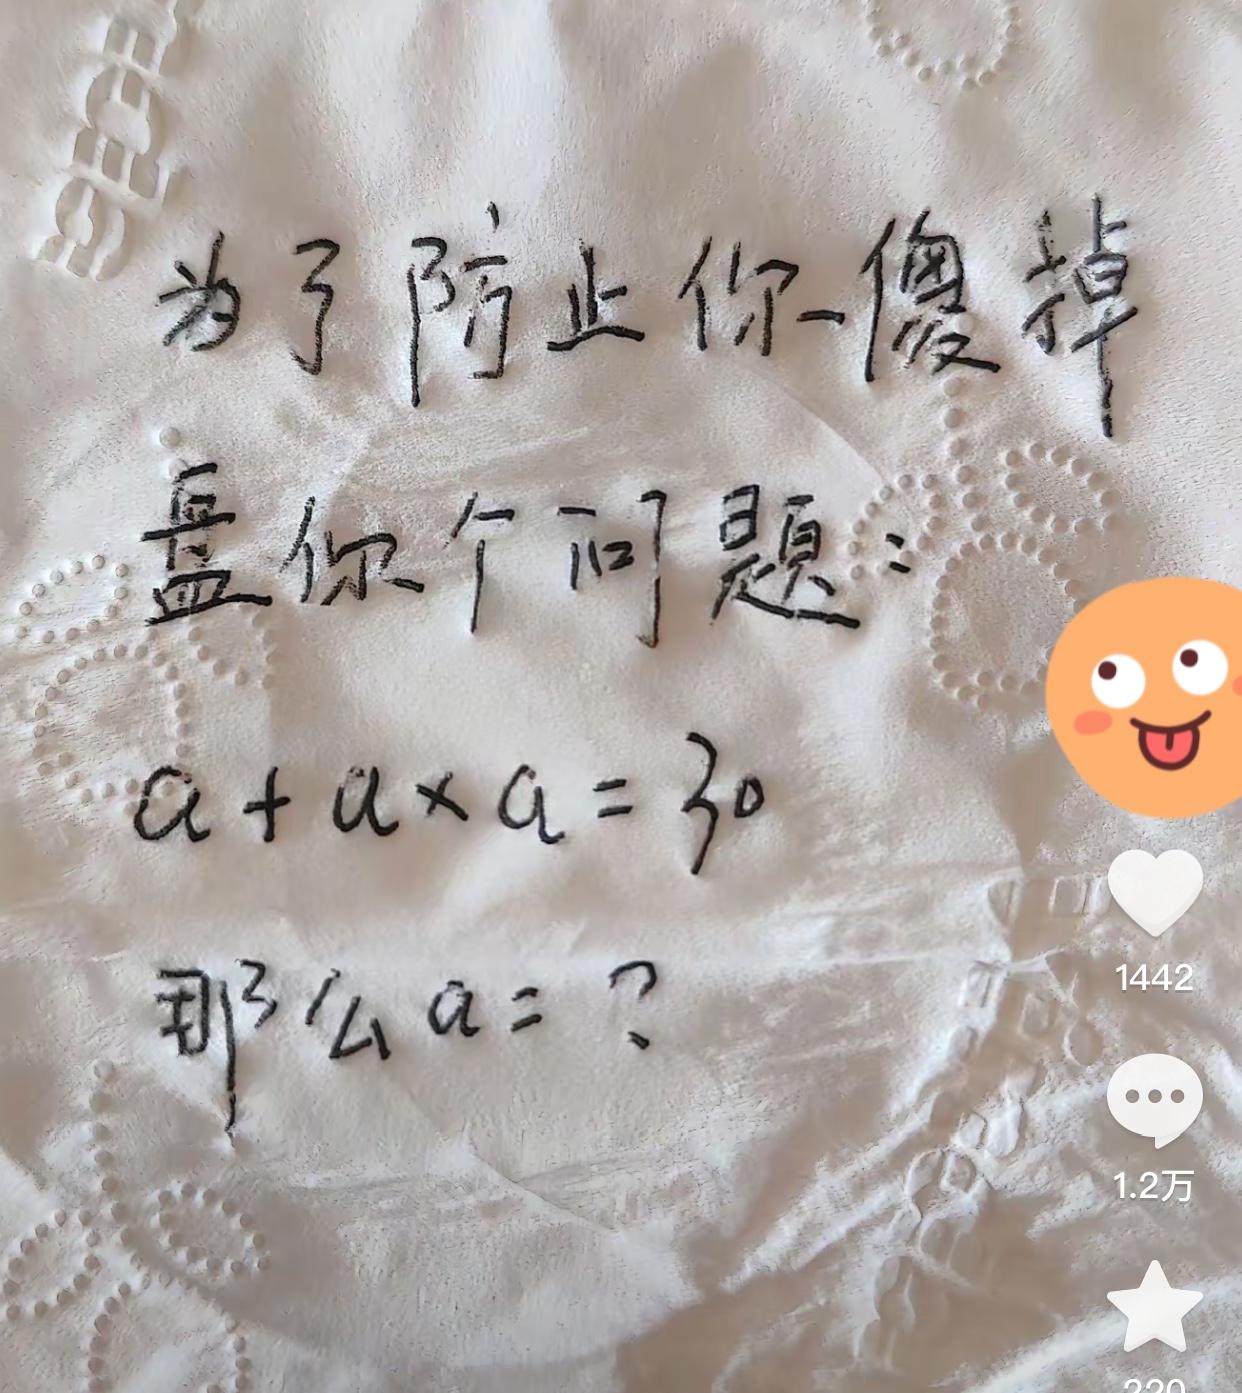 为了防止你傻掉
盘你个问题:
a+a×a=30
那么a=?
1442
1.2万